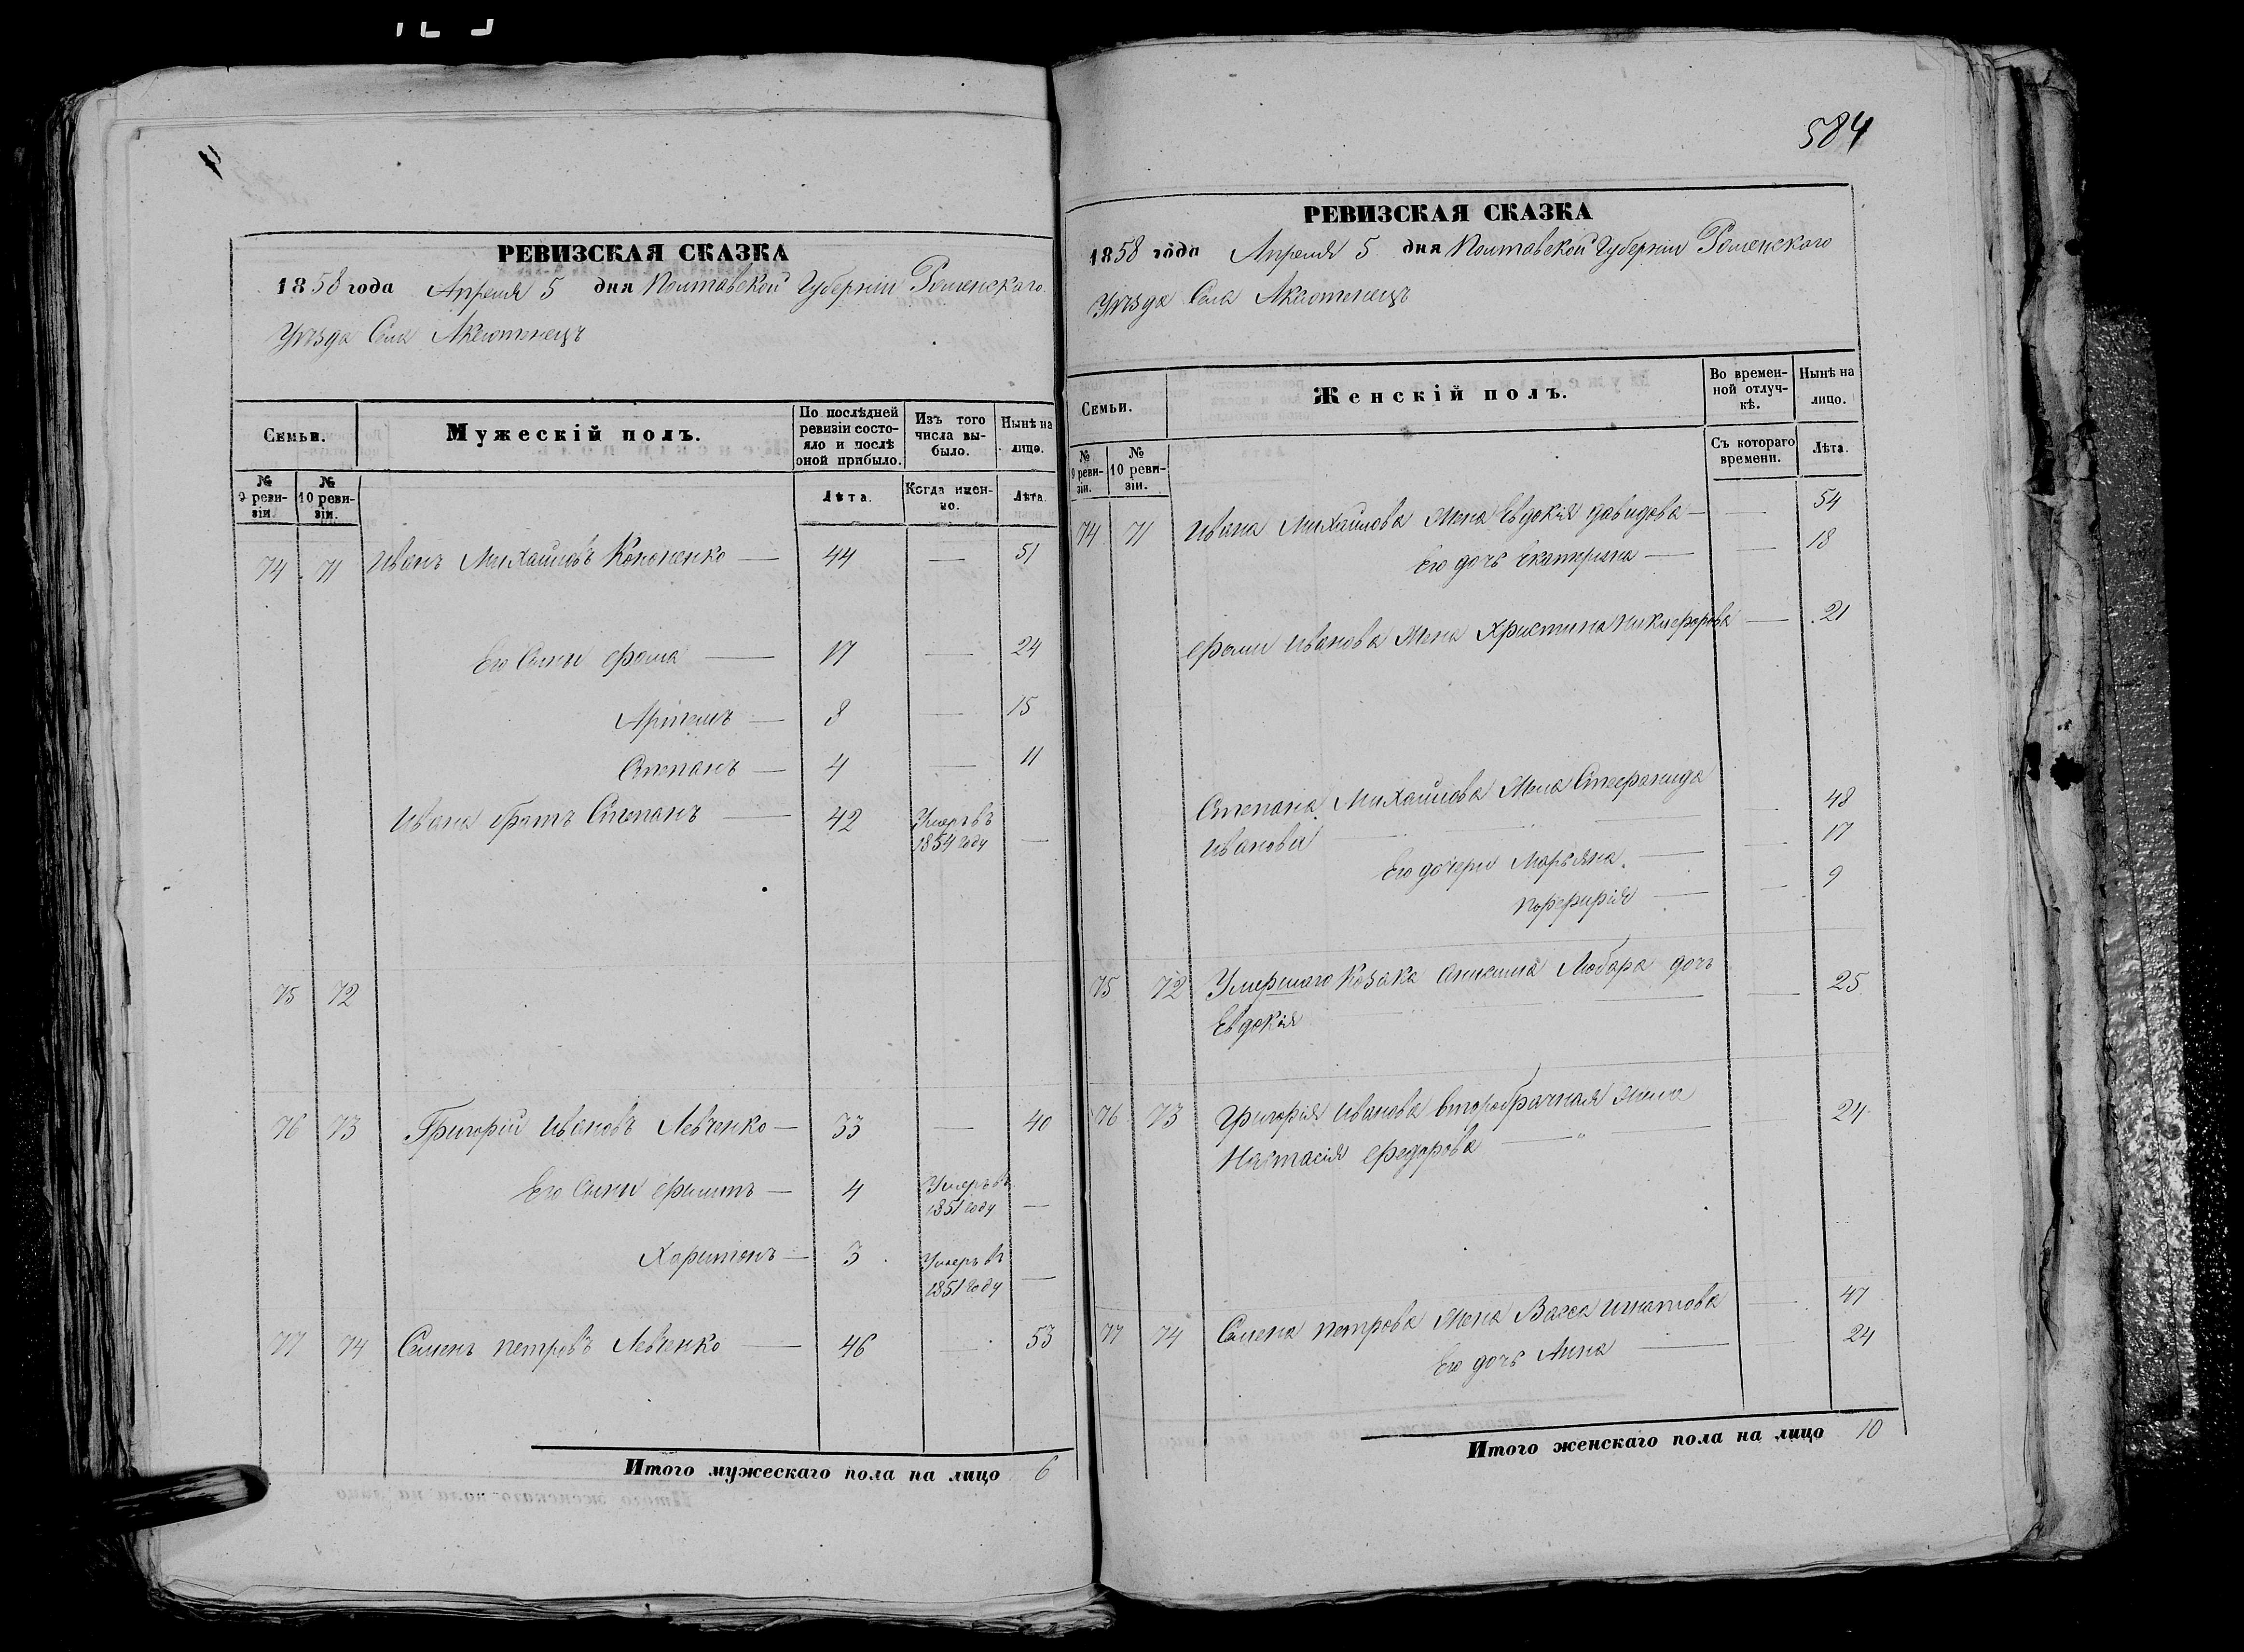 584
РЕВИЗСКАЯ СКАЗКА
1858 года Апреля 5 дня Полтавской Губерніи Роменскаго
Уѣзда Села Аксютенецъ
Семьи.
Мужескій полъ.
По послѣдней ревизіи состояло и послѣ оной прибыло.
Изъ того числа выбыло.
Нынѣ на лицо.
№ 9 ревизіи.
№ 10 ревизіи.
Лѣта.
Когда именно.
Лѣта.
74 71 Иванъ Михайловъ Кононенко — 44 — 51
Его Сыны Фома — 17 — 24
Артемъ — 8 — 15
Степанъ — 4 — 11
Ивана братъ Степанъ — 42 Умеръ въ 1854 году —
75 72
76 73 Григорій Ивановъ Левченко — 33 — 40
Его Сыны Филипъ — 4 Умеръ въ 1851 году —
Харитонъ — 3 Умеръ въ 1851 году —
77 74 Семенъ Петровъ Левченко — 46 — 53
Итого мужескаго пола на лицо 6
РЕВИЗСКАЯ СКАЗКА
1858 года Апреля 5 дня Полтавской Губерніи Роменского
Уѣзда Села Аксютенецъ
Семьи.
Женскій полъ.
Во временной отлучкѣ.
Нынѣ на лицо.
№ 9 ревизіи.
№ 10 ревизіи.
Съ котораго времени.
Лѣта.
74 71 Ивана Михайлова Жена Евдокія Давидова — — 54
Его дочь Екатерина — — 18
Фомы Иванова Жена Христина Никифорова — 21
Степана Михайлова Жена Стефанида
Иванова — — 48
Его дочери Марьяна — — 17
Порфирія — — 9
75 72 Умершаго Козака Любара дочь
Евдокія — — 25
76 73 Григорія Иванова второбрачная Жена
Настасія Федорова — — 24
77 74 Семена Петрова Жена Васса Игнатова — 47
Его дочь Анна — — 24
Итого женскаго пола на лицо 10